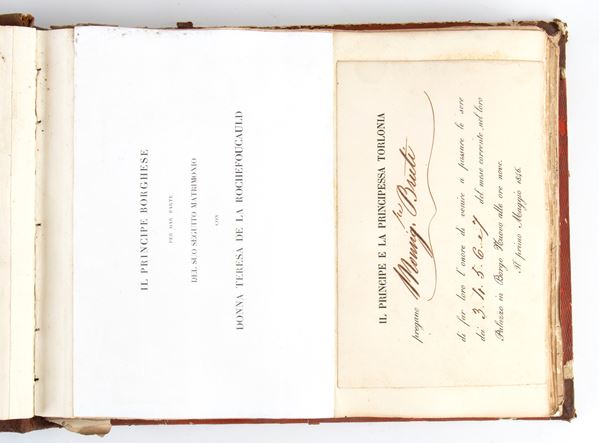 IL PRINCIPE BORGHESE
PER DAR PARTE
DEL SUO SEGUITO MATRIMONIO
CON
DONNA TERESA DE LA ROCHEFOUCAULD
IL PRINCIPE E LA PRINCIPESSA TORLONIA
pregano Monsig.re Bruti
di far loro l'onore di venire a passare le sere
dei 3. 4. 5. 6. e 7 del mese corrente nel loro
Palazzo in Borgo Nuovo alle ore nove.
Il primo Maggio 1846.